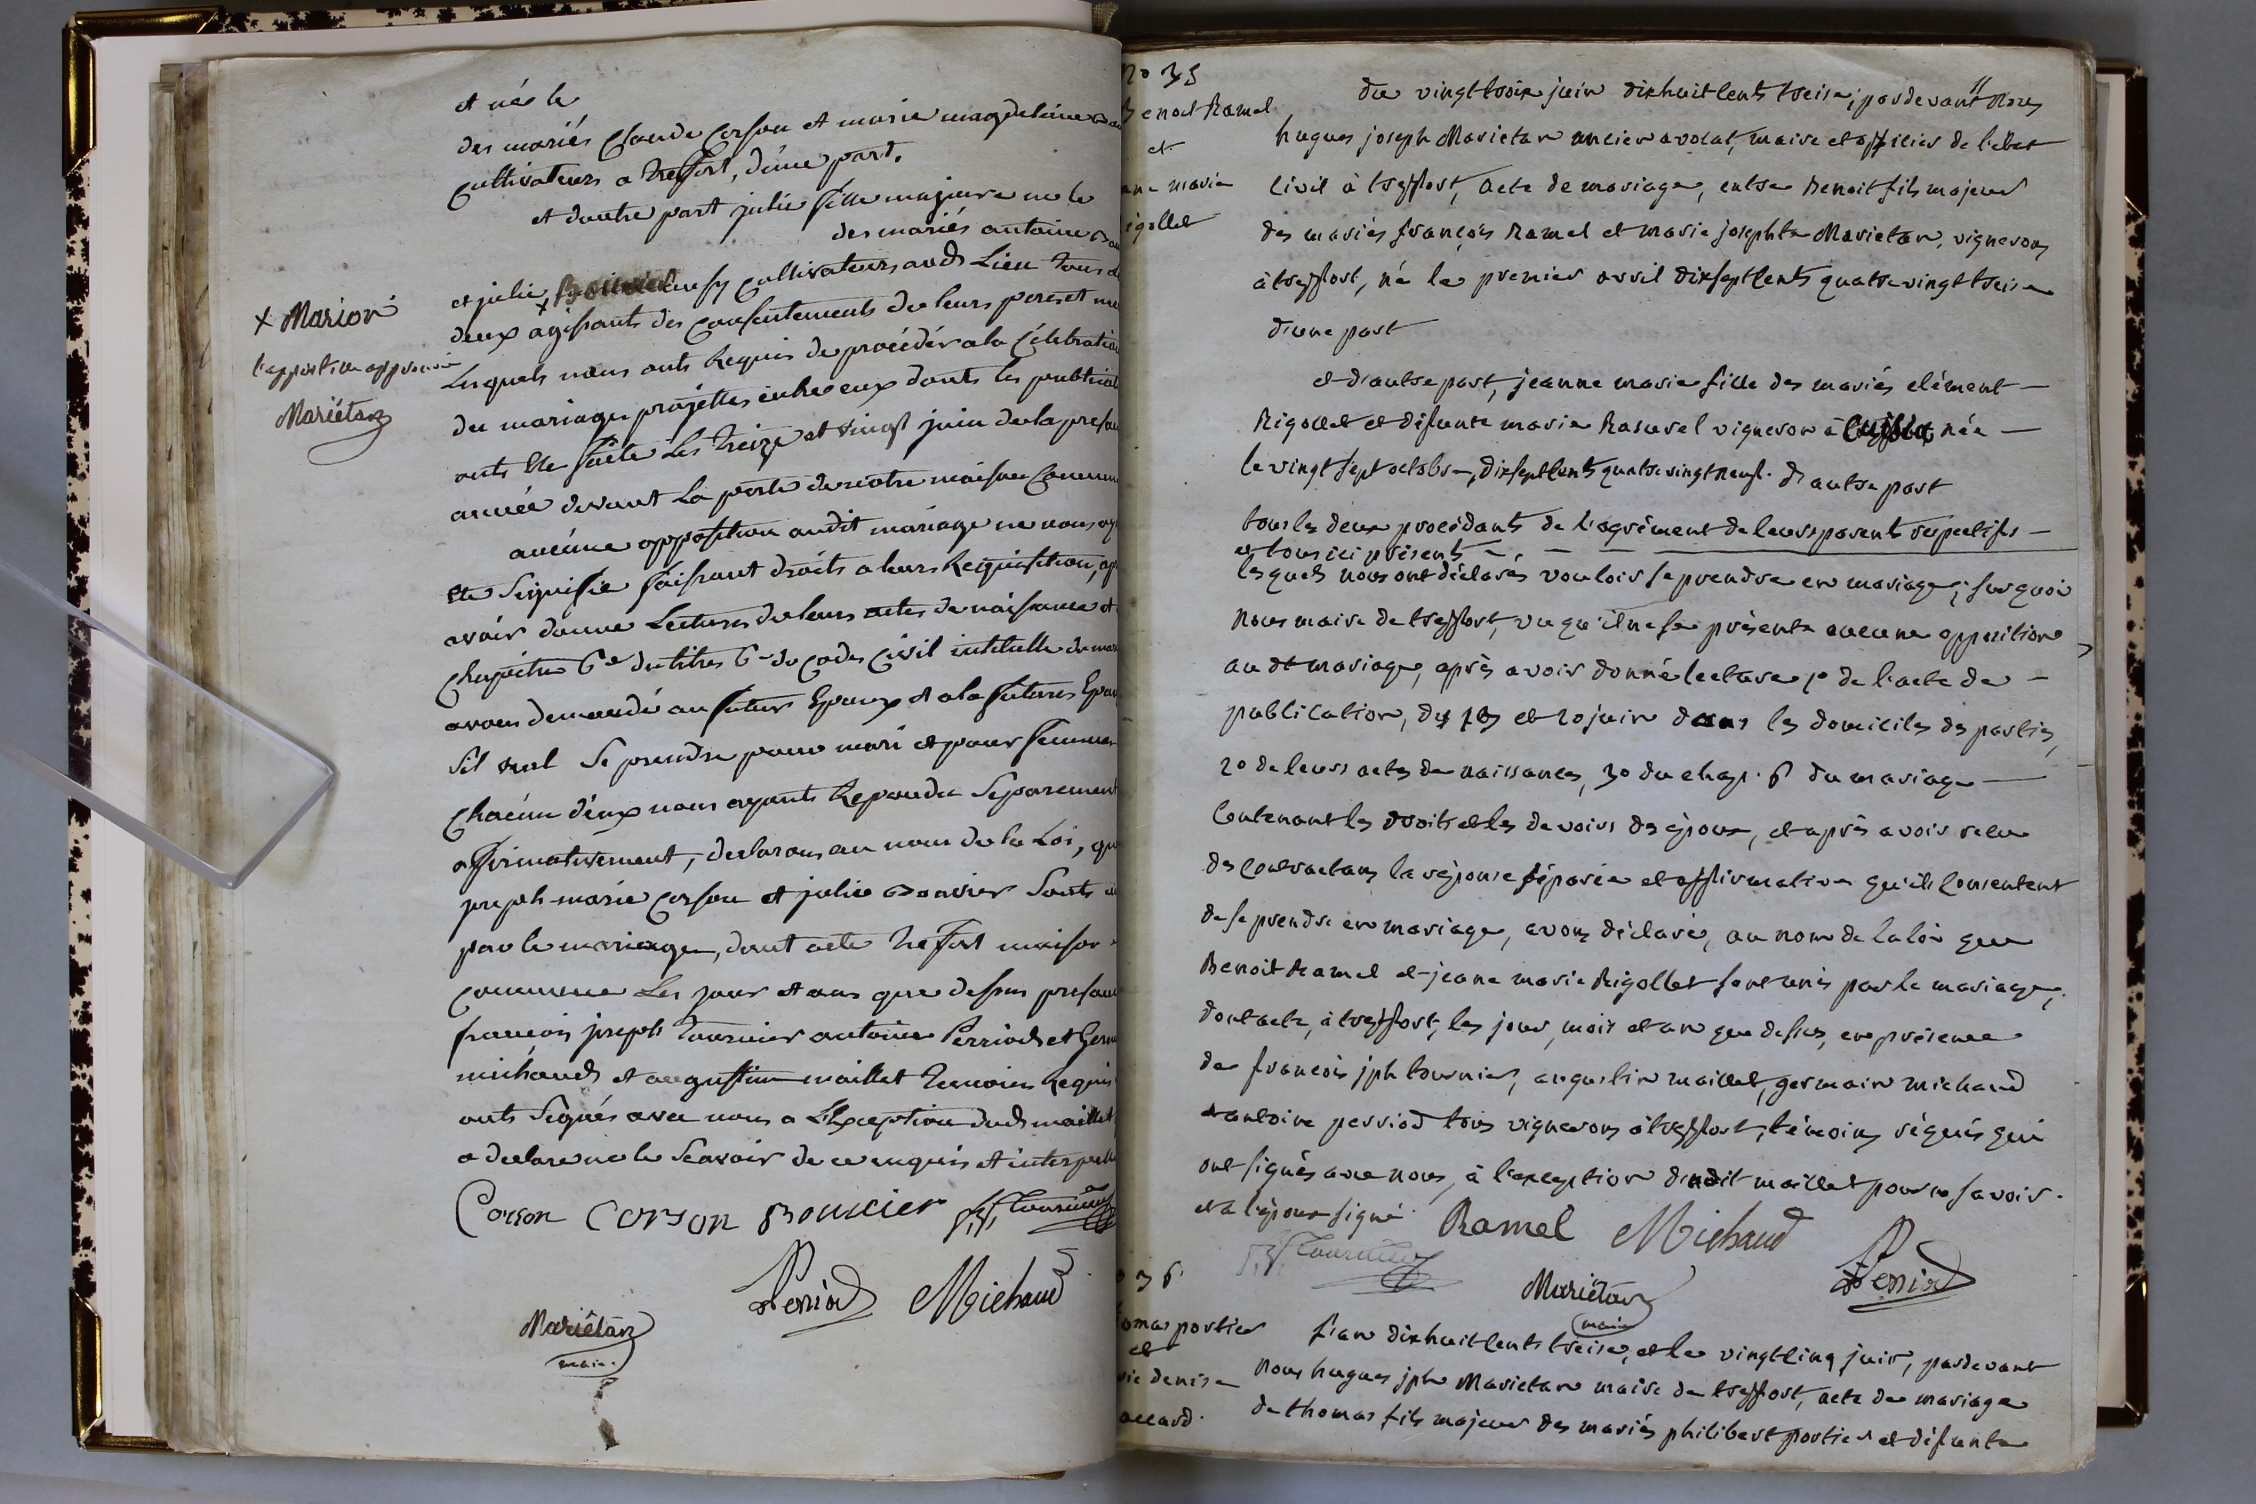 et née le
des mariés Claude Corson et marie magdelaine
Cultivateurs a treffort, d'une part.
et dautre part julie fille majeure née le
des mariés antoine
et julie + cultivateurs aud Lieu tous
deux agissants des Consentements de leurs peres et
Lesquels nous onts Requis de procéder a la Célébration
du mariage projettes entre eux donts les
onts Ete faite Les treize et vingt juin de la
année devant La porte de notre maison
aucune opposition audit mariage ne nous
Ete Signifie faissant droits a leurs Requisition,
avoir donne Lectures de leurs actes de naissance et
Chapitre 6e du titre 6e du Code Civil intitulle du
avons demandé au futur Epoux et a la future
s'il veul Se prendre pour mari et pour femme
Chacun d'eux nous ayants Repondu Separement
affirmativement, declarons au nom de la Loi,
joseph marie Corson et julie Bouvier Sonts
par le mariage, dont acte treffort maison
Commune Les jour et ans que dessus
françois joseph Tournier antoine Perriod et
michaud et augustin maillet temoins Requis
onts Signés avec nous a L'Exception dud maillet
a declare ne le Scavoir de ce enquis et
Corson Corson Bouvier fs jh Tournier
Perriod Michaud
Mariétan
maire.
x Marion
l'apposition approuvée
Mariétan
no 35
Benoit Ramel
et
marie
du vingt trois juin dixhuit cents treise, pardevant Nous
hugues joseph Marietan ancien avocat, maire et officier de l'état
Civil à treffort, acte de mariage, entre Benoit fils majeur
des mariés françois Ramel et marie josephte Marietan, vignerons
à treffort, né le premier avril dixsept cents quatre vingt treise
d'une part
et d'autre part, jeanne marie fille des mariés clément
Rigollet et défunte marie Rasurel vigneron à Cuisia, née
le vingt sept octobre, dixsept cents quatre vingt neuf. d'autre part
tous les deux procédants de l'agrément de leurs parents respectifs
et tous ici présents
lesquels nous ont déclarés vouloir se prendre en mariage; sur quoi
Nous maire de treffort, vu qu'il ne se présente aucune opposition
au dt mariage, après avoir donné lecture 1o de l'acte de
publication, des et 20 juin dans les domiciles des parties,
2o de leurs actes de naissances, 3o du chap. 6 du mariage
Contenant les droits et les devoirs des époux, et après avoir reçu
des contractans la réponse séparée et affirmative qu'ils consentent
de se prendre en mariage, avons déclaré, au nom de la loi que
Benoit Ramel et jeane marie Rigollet sont unis par le mariage;
dont acte, à treffort, les jour, mois et an que dessus, en présence
de françois jph tournier, augustin maillet, germain michaud
et antoine perriod tous vignerons à treffort, témoins réquis qui
ont signés avec nous, à l'exception dudit maillet pour ne savoir.
et a l'époux signé. Ramel Michaud
fs jh Tournier Mariétan Perriod
maire
36
portier
et
denise
l'an dixhuit cents treise, et le vingt cinq juin, pardevant
Nous hugues jph Marietan maire de treffort, acte de mariage
de thomas fils majeur des mariés philibert portier et défunte